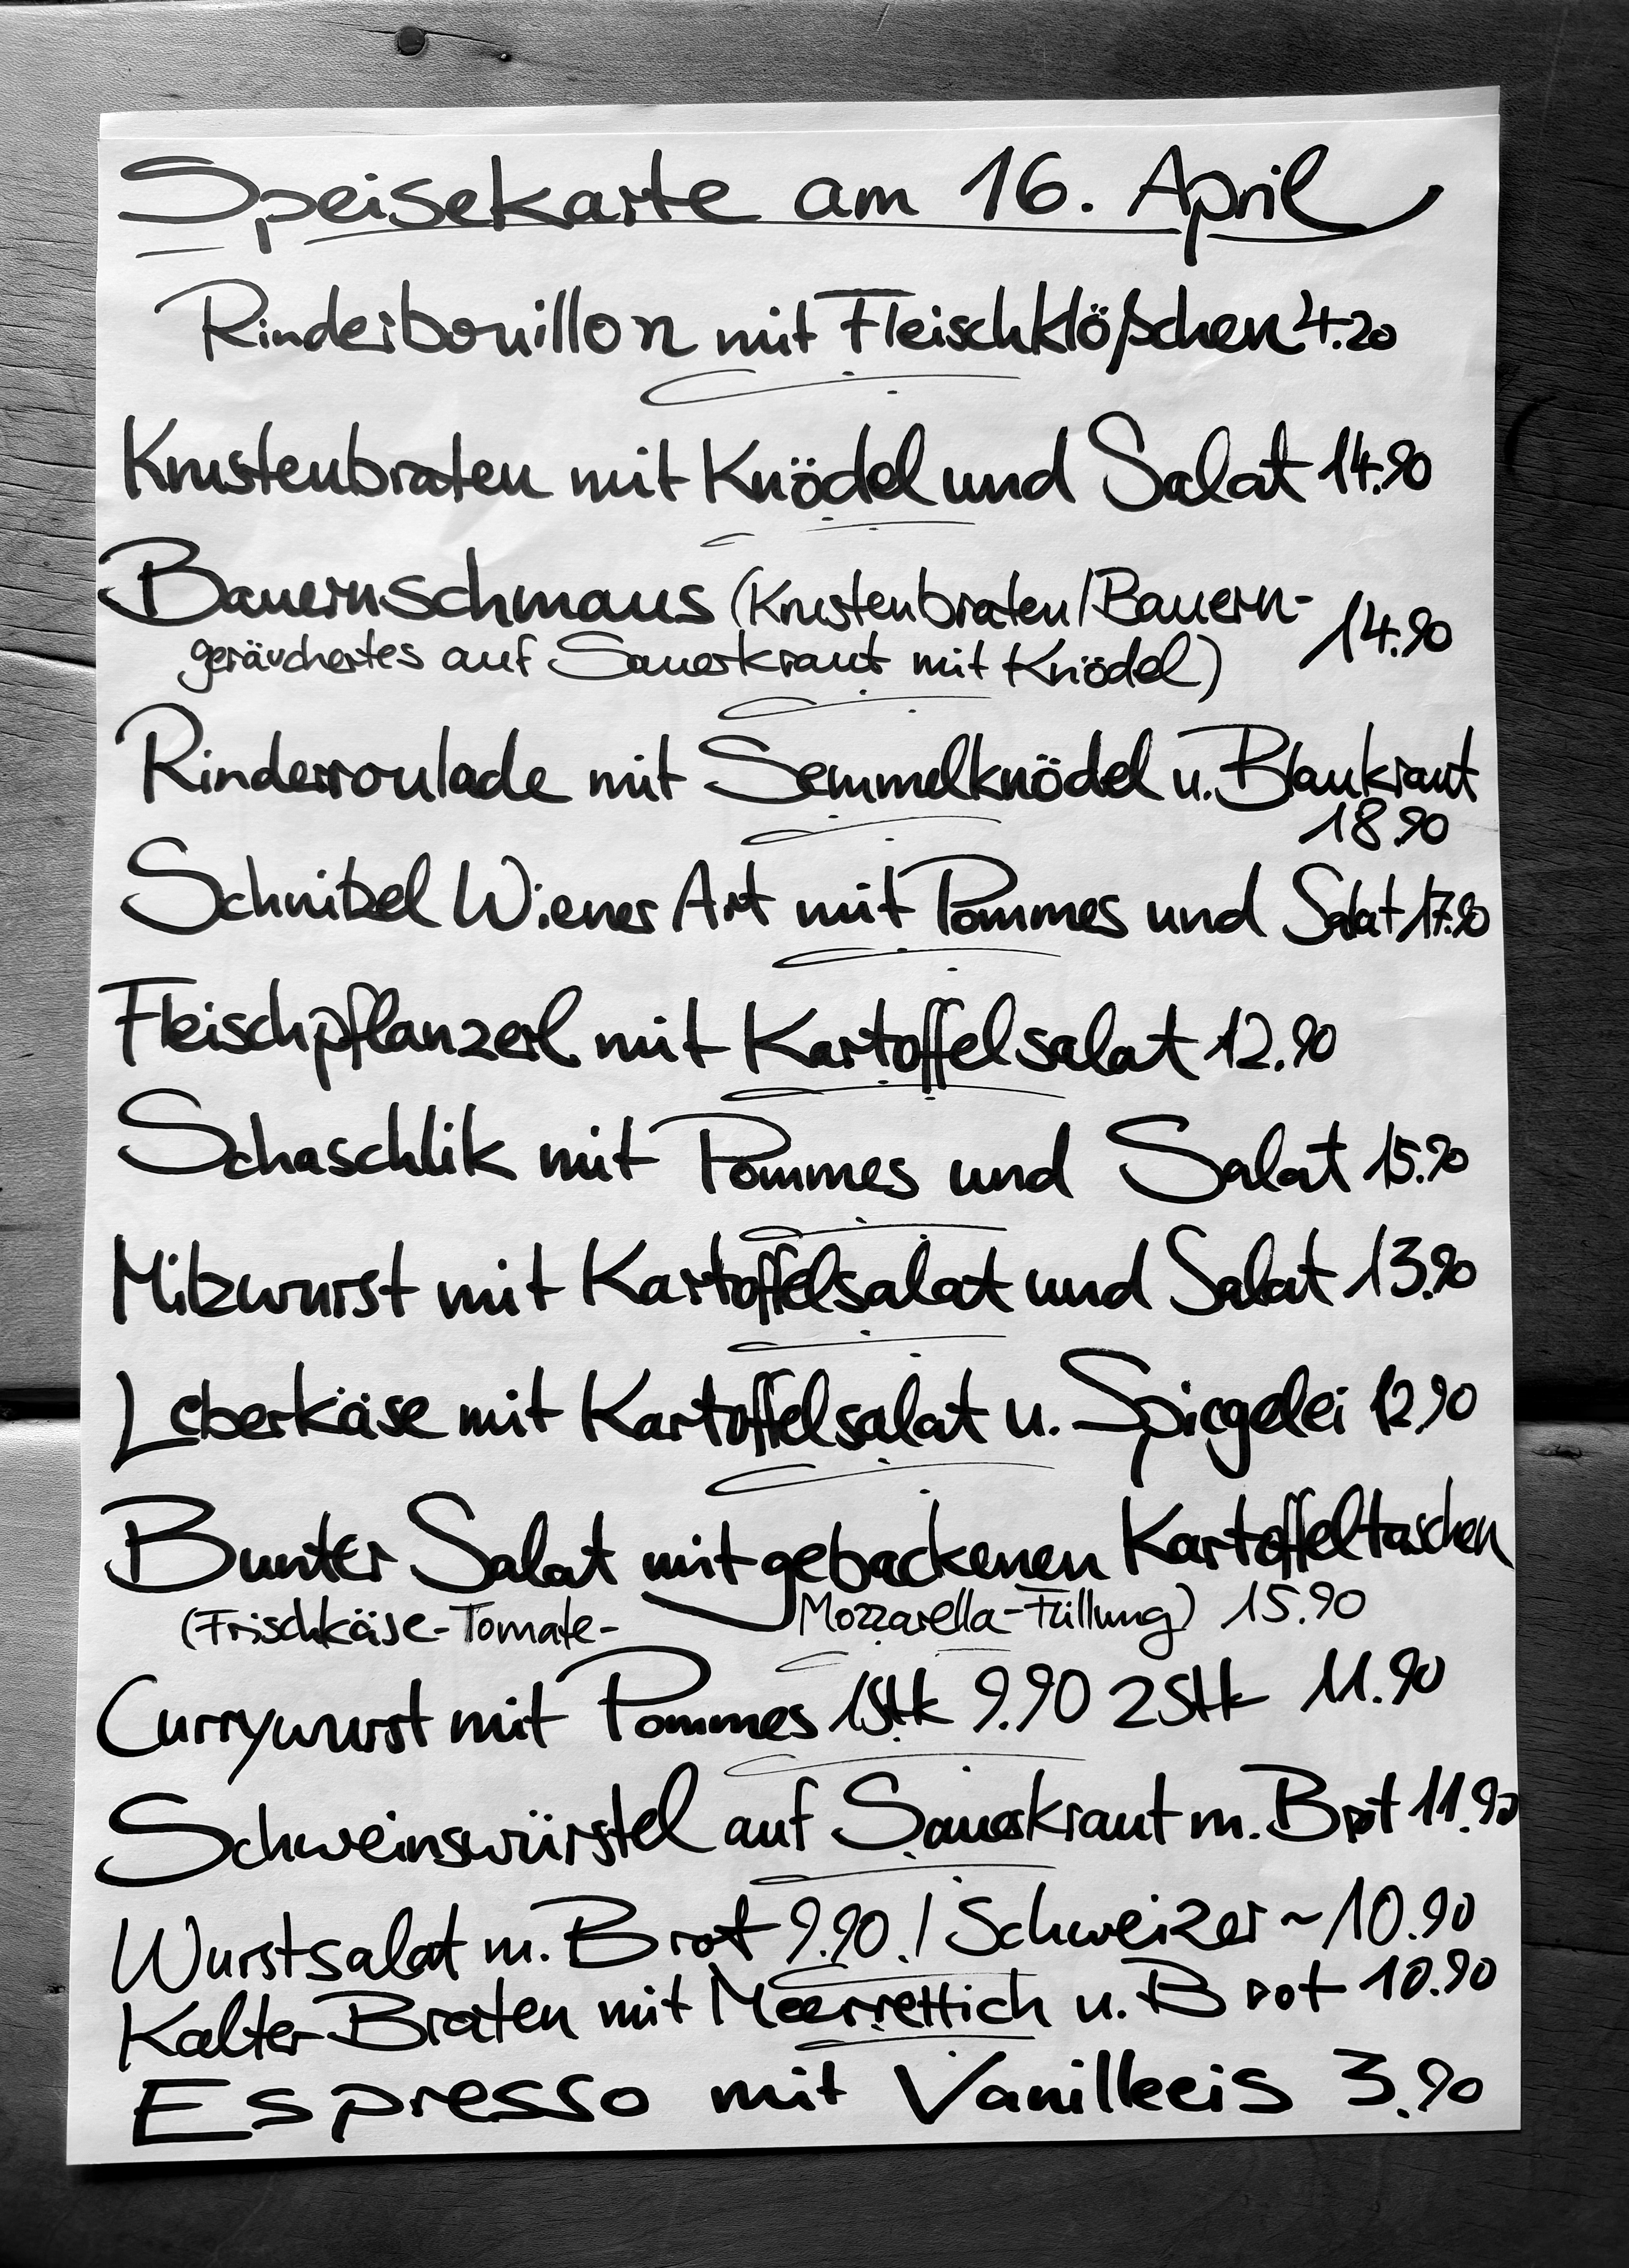 Speisekarte am 16. April
Rinderbouillon mit Fleischklößchen 4.20
Krustenbraten mit Knödel und Salat 14.90
Bauernschmaus (Krustenbraten/Bauern-
geräuchertes auf Sauerkraut mit Knödel) 14.90
Rinderroulade mit Semmelknödel u. Blaukraut
18.90
Schnitzel Wiener Art mit Pommes und Salat 17.90
Fleischpflanzerl mit Kartoffelsalat 12.90
Schaschlik mit Pommes und Salat 15.90
Milzwurst mit Kartoffelsalat und Salat 13.90
Leberkäse mit Kartoffelsalat u. Spiegelei 12.90
Bunter Salat mit gebackenen Kartoffeltaschen
(Frischkäse-Tomate- Mozzarella-Füllung) 15.90
Currywurst mit Pommes 1Stk 9.90 2Stk 11.90
Schweinswürstel auf Sauerkraut m. Brot 11.90
Wurstsalat m. Brot 9.90./Schweizer ~ 10.90
Kalter Braten mit Meerrettich u. Brot 10.90
Espresso mit Vanilleeis 3.90